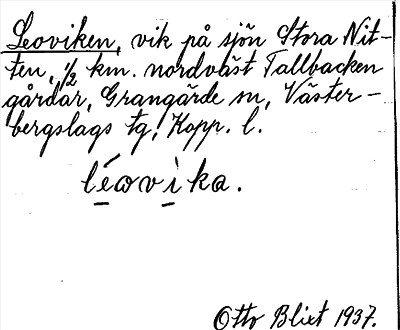 Leoviken, vik på sjön Stora Nit-
ten, 1/2 km. nordväst Tallbacken
gårdar, Grangärde sn, Väster-
bergslags tg, Kopp. l.
léovìka.
Otto Blixt 1937.